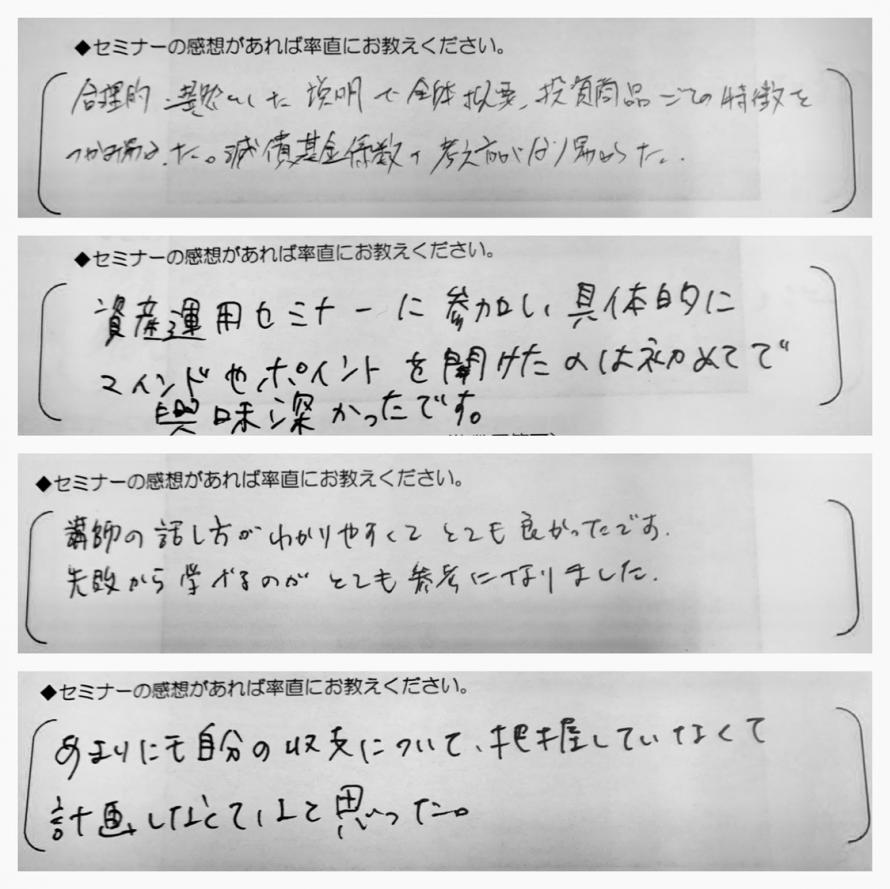 ◆セミナーの感想があれば率直にお教えください。
合理的、した説明で全体概要、投資商品ごとの特徴を
つかみ易かった。減債基金係数の考え方がより易かった。
◆セミナーの感想があれば率直にお教えください。
資産運用セミナーに参加し、具体的に
マインドやポイントを聞けたのは初めてで
興味深かったです。
◆セミナーの感想があれば率直にお教えください。
講師の話し方がわかりやすくてとても良かったです。
失敗から学べるのがとても参考になりました。
◆セミナーの感想があれば率直にお教えください。
あまりにも自分の収支について、把握していなくて
計画しなくてはと思った。